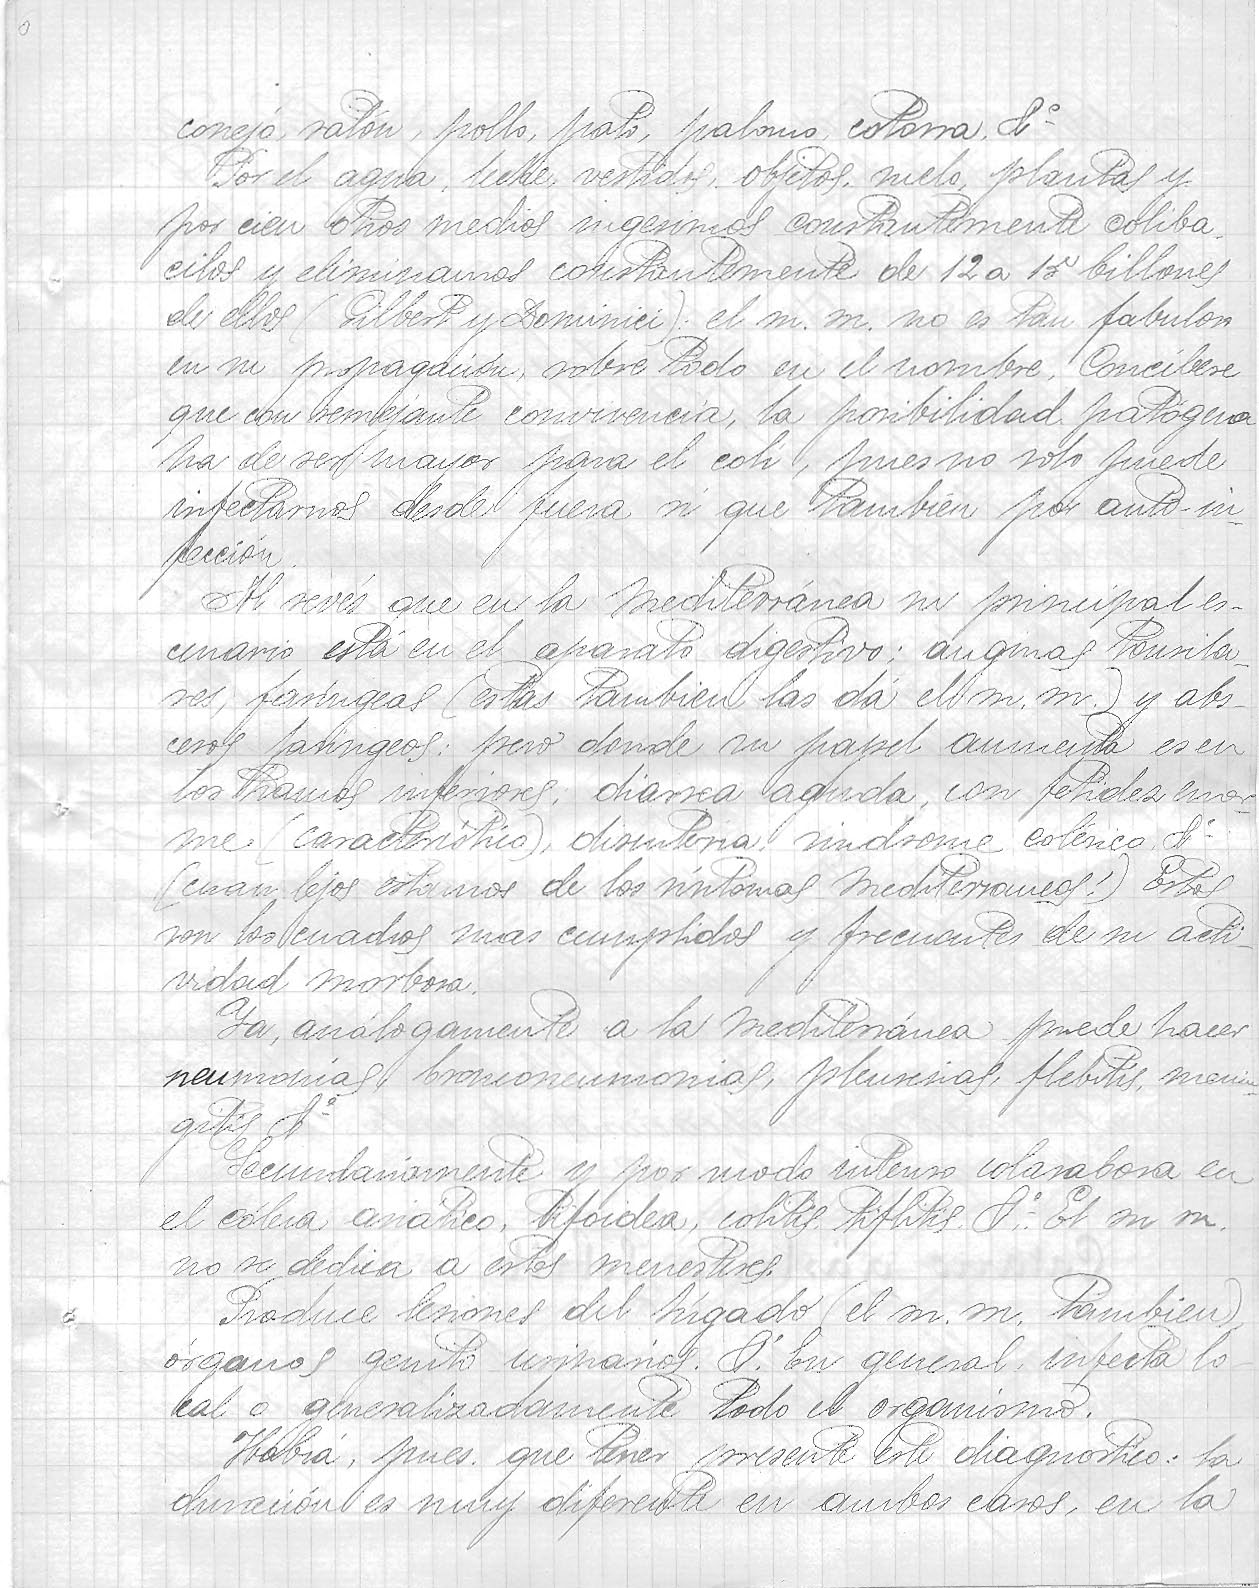 conejo, ratón, pollo, pato, palomo, cotorra, &ª
Por el agua, leche, vestidos, objetos, suelo, plantas y
por cien otros medios ingerimos constantemente coliba-
cilos y eliminamos constantemente de 12 a 15 billones
de ellos (Gilbert y Dominici): el m. m. no es tan fabuloso
en su propagación, sobre todo en el nombre. Concíbese
que con semejante convivencia, la posibilidad patógena
ha de ser mayor para el coli, pues no solo puede
infectarnos desde fuera si que también por auto-in-
fección.
Al revés que en la Mediterránea su principal es-
cenario está en el aparato digestivo; anginas tonsila-
res, faríngeas (estas tambien las dá el m. m.) y abs-
cesos faríngeos: pero donde su papel aumenta es en
los tramos inferiores; diarrea aguda, con fetidez enor-
me (característico), disenteria, sindrome colérico, &ª
(cuan lejos estamos de los síntomas mediterraneos!) Estos
son los cuadros mas cumplidos y frecuentes de su acti-
vidad morbosa.
Ya, análogamente a la Mediterránea puede hacer
neumonias, bronconeumonias, pleuresias, flebitis, menin-
gitis &ª
Secundariamente y por modo intenso colarabora en
el cólera asiático, tifoidea, colitis, tiflitis, &ª. El m m.
no se dedica a estos menesteres.
Produce lesiones del hígado (el m. m. tambien),
órganos genito urinarios. &. En general, infecta lo-
cal o generalizadamente todo el organismo.
Habrá, pues, que tener presente este diagnostico: la
duración es muy diferente en ambos casos, en la